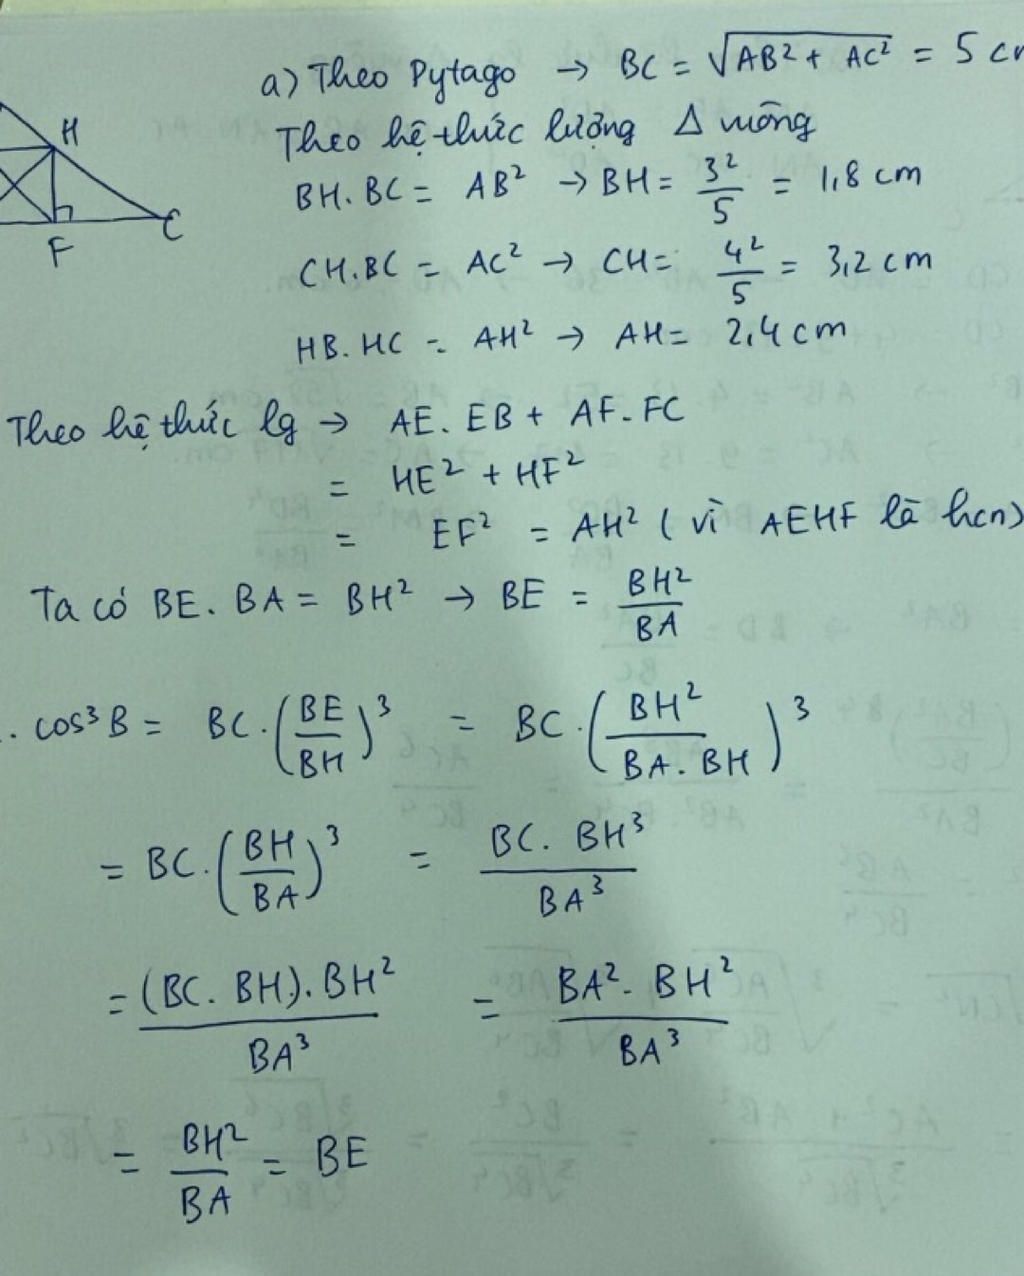 a) Theo Pytago → BC = √(AB² + AC²) = 5 c
H
Theo hệ thức lượng Δ vuông
BH. BC = AB² → BH = 3²/5 = 1,8 cm
C
F
CH.BC = AC² → CH = 4²/5 = 3,2 cm
HB. HC = AH² → AH = 2,4 cm
Theo hệ thức lg → AE. EB + AF. FC
= HE² + HF²
= EF² = AH² ( vì AEHF là hcn)
Ta có BE. BA = BH² → BE = BH²/BA
. cos³B = BC.(BE/BH)³ = BC.(BH²/BA.BH)³
= BC.(BH/BA)³ = BC. BH³/BA³
= (BC. BH). BH²/BA³ = BA². BH²/BA³
= BH²/BA = BE